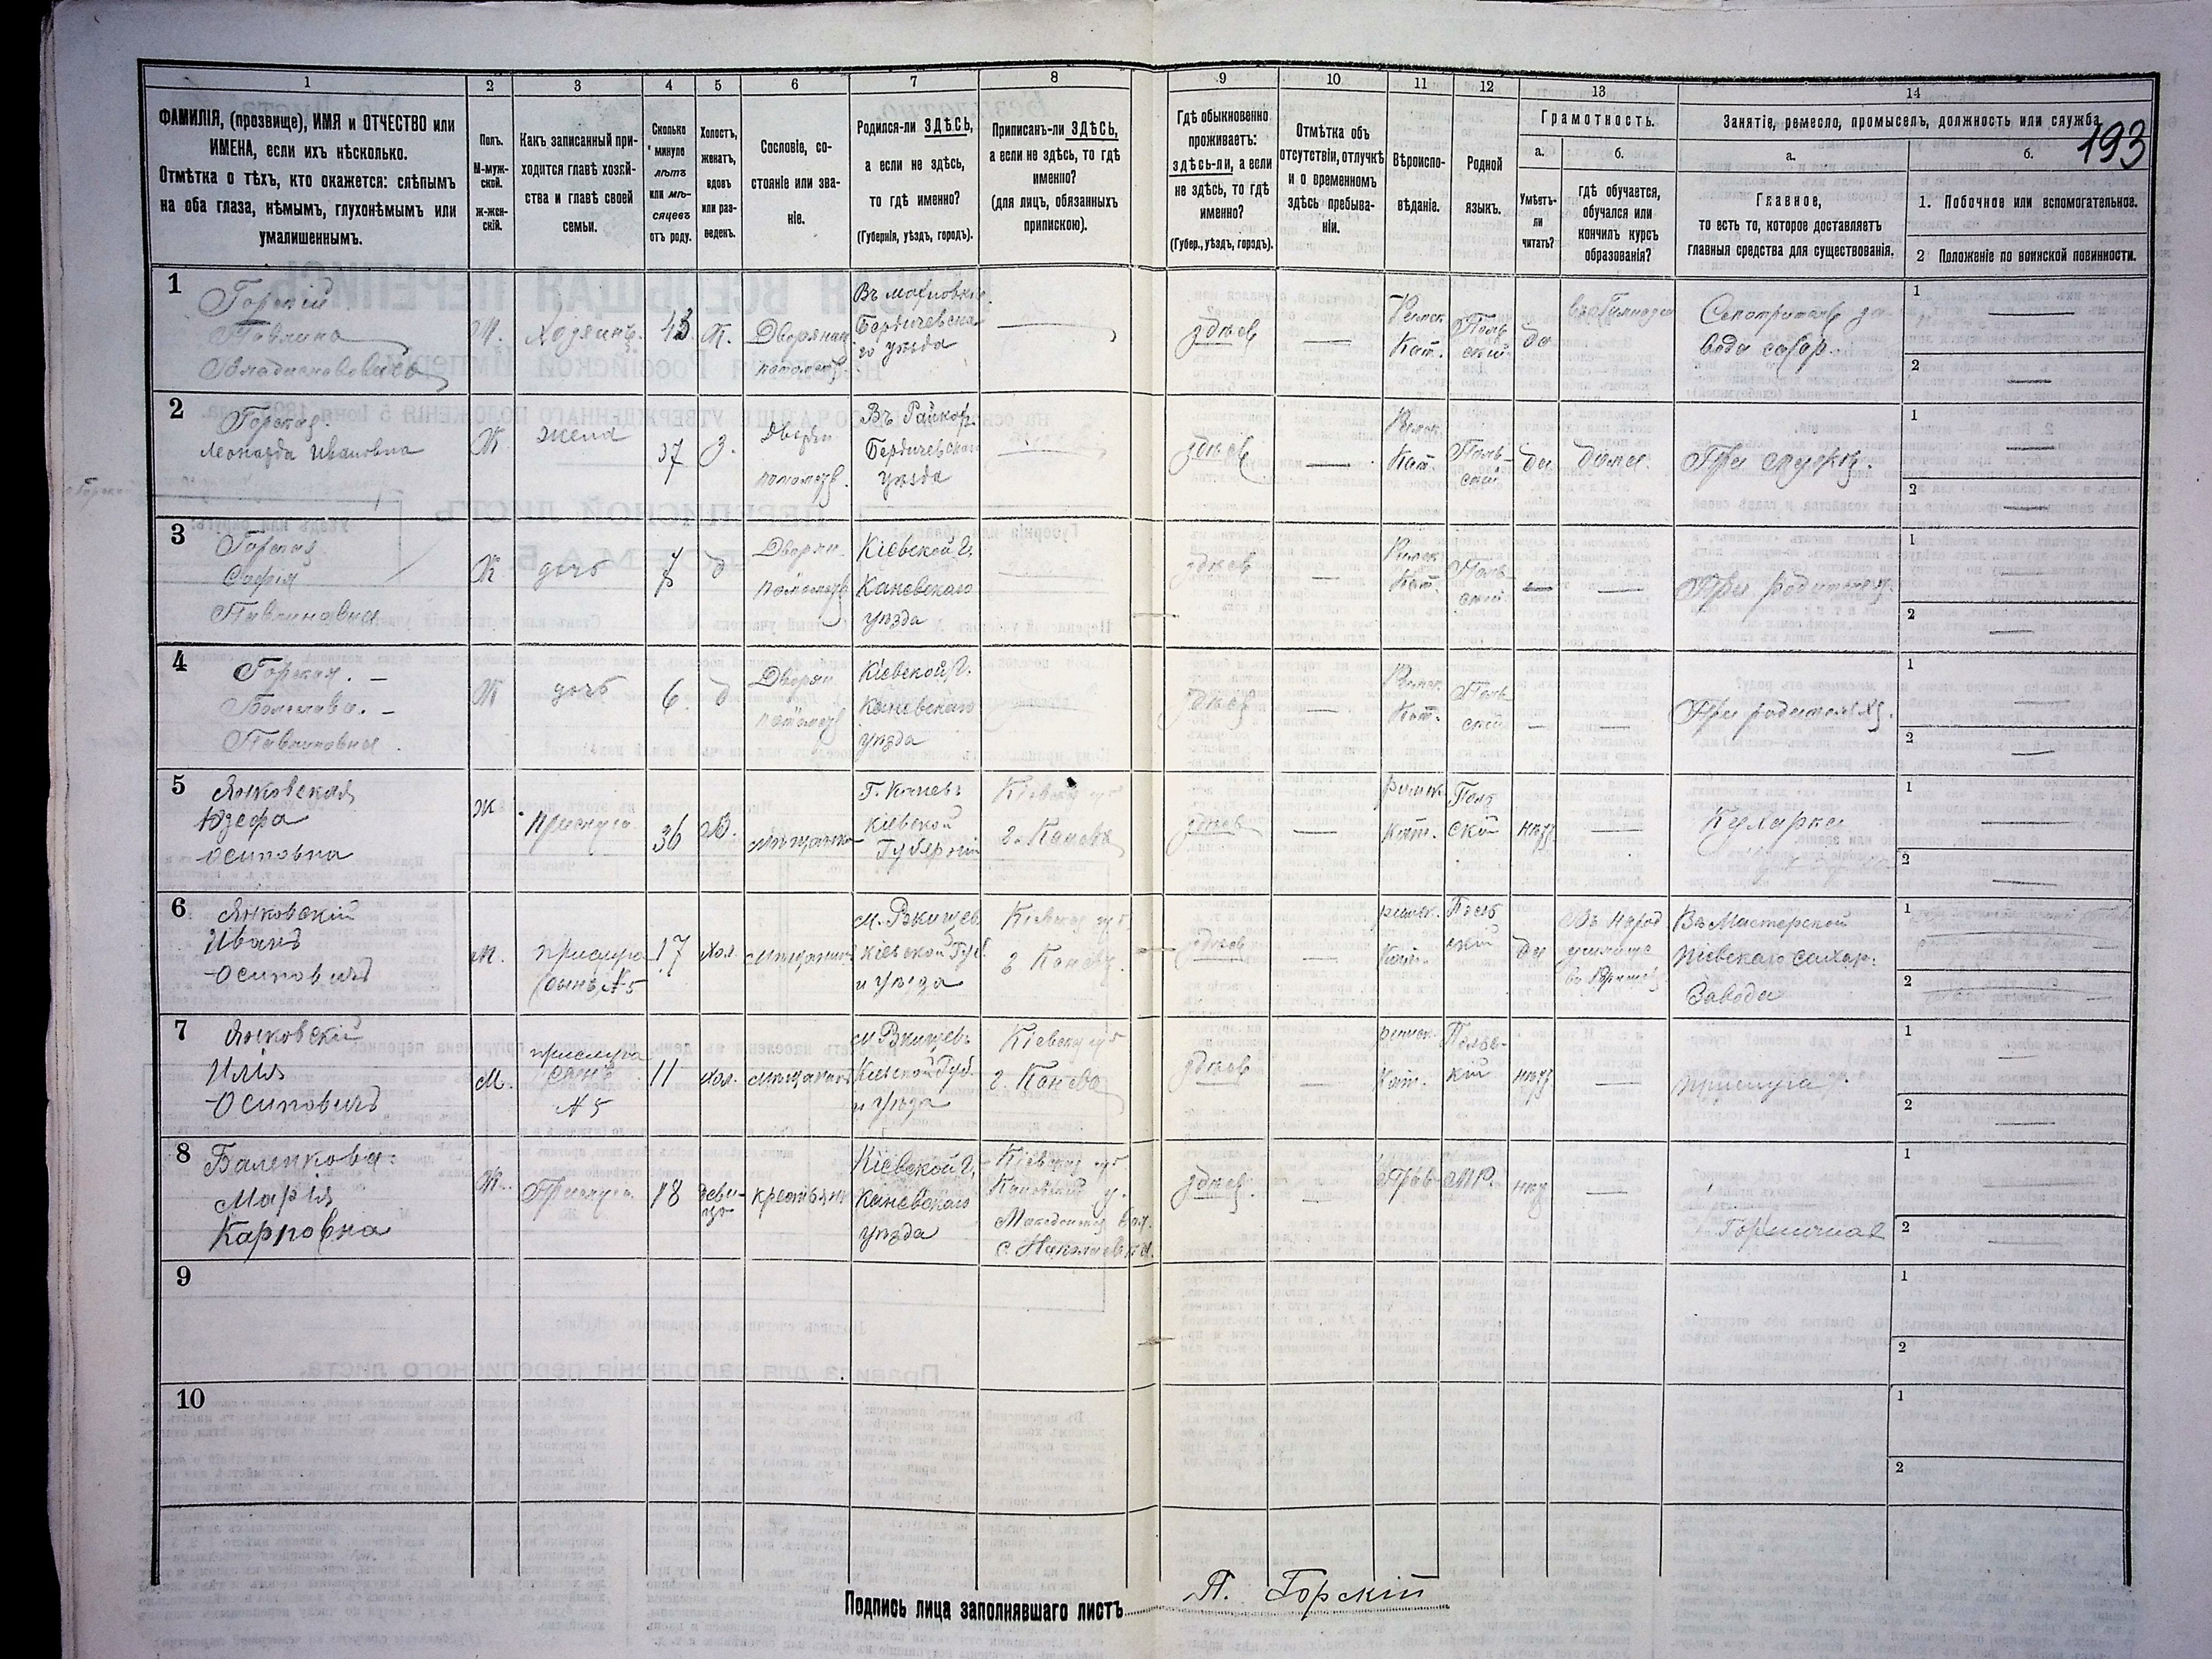 193
1 2 3 4 5 6 7 8 9 10 11 12 13 14
ФАМИЛІЯ, (прозвище), ИМЯ и ОТЧЕСТВО или
ИМЕНА, если ихъ нѣсколько.
Отмѣтка о тѣхъ, кто окажется: слѣпымъ
на оба глаза, нѣмымъ, глухонѣмымъ или
умалишеннымъ.
Полъ.
М-муж-
ской.
ж-жен-
скій.
Какъ записанный при-
ходится главѣ хозяй-
ства и главѣ своей
семьи.
Сколько
минуло
лѣтъ
или мѣ-
сяцевъ
отъ роду.
Холостъ,
женатъ,
вдовъ
или раз-
веденъ.
Сословіе, со-
стояніе или зва-
ніе.
Родился-ли ЗДѢСЬ,
а если не здѣсь,
то гдѣ именно?
(Губернія, уѣздъ, городъ).
Приписанъ-ли ЗДѢСЬ,
а если не здѣсь, то гдѣ
именно?
(для лицъ, обязанныхъ
припискою).
Гдѣ обыкновенно
проживаетъ:
ЗДѢСЬ-ли, а если
не здѣсь, то гдѣ
именно?
(Губер., уѣздъ, городъ).
Отмѣтка объ
отсутствіи, отлучкѣ
и о временномъ
здѣсь пребыва-
ніи.
Вѣроиспо-
вѣданіе.
Родной
языкъ.
Грамотность.
а.
Умѣетъ-
ли
читать?
б.
гдѣ обучается,
обучался или
кончилъ курсъ
образованія?
Занятіе, ремесло, промыселъ, должность или служба
а.
Главное,
то есть то, которое доставляетъ
главныя средства для существованія.
б.
1. Побочное или вспомогательное.
2 Положеніе по воинской повинности.
1
Горскій
Павлина
Владиславовичъ
Хозяинъ.
Дворянин
потомств.
Въ Махновкѣ
Бердичевска
го уѣзда
здѣсь
Римск
Кат.
Поль
ский
да
завода сахар.
1
2
2
Горская.
Леонарда Ивановна
Ж
жена
37
з.
Дворян
потомств.
Бердичевскаго
уѣзда
здѣсь
Римск
Кат.
Поль-
ский
да
дома.
При мужѣ.
1
2
3
Горская
Софія
Павлиновна
Ж
дочь
д
Дворян
потомств
Кіевской Г.
Каневскаго
уѣзда
здѣсь
Римск
Кат.
Поль
ский
При родителяхъ.
1
2
4
Горская. –
Болеслава. –
Павлиновна.
Ж
дочь
6.
д
Дворян
потомств
Кіевской Г.
Каневскаго
уѣзда
здѣсь
Римск.
Кат.
Поль
ский
При родителяхъ.
1
2
5
Янковская
Юзефа
Осиповна
Ж
Прислуга
36
В.
мѣщанка
Г. Каневъ
Кіевской
Губерніи
Кіевск губ
г. Канева
здѣсь
римск.
Кат.
Поль
ский
нѣтъ
Кухарка
1
2
6
Янковскій
Иванъ
Осиповичъ
М.
прислуга
(сынъ) № 5
17
хол.
мѣщанинъ
м. Ржищевъ
Кіевской Губ.
и уѣзда
Кіевск губ
г Канева
здѣсь
римск.
Кат.
Поль
ский
да
Въ народ
училище
въ Ржищевѣ
Въ Мастерской
Кіевскаго сахар.
Завода
1
2
7
Янковскій
Илія
Осиповичъ
М.
прислуга
сынъ
№ 5
11
хол.
мѣщанинъ
м Ржищевъ
Кіевской Губ.
и уѣзда
Кіевск губ
г. Канева
здѣсь
римск.
Кат.
Поль-
кій
нѣтъ
прислуга
1
2
8
Баленкова
Марія
Карповна
Ж.
Прислуга
18
дѣви-
ца
крестьянк
Кіевской Г.
Каневскаго
уѣзда
Кіевск губ
Каневскій у.
с Николаевка.
здѣсь.
Прав
МР.
нѣтъ
Горничная
1
2
9
1
2
10
1
2
Подпись лица заполнявшаго листъ П. Горскій